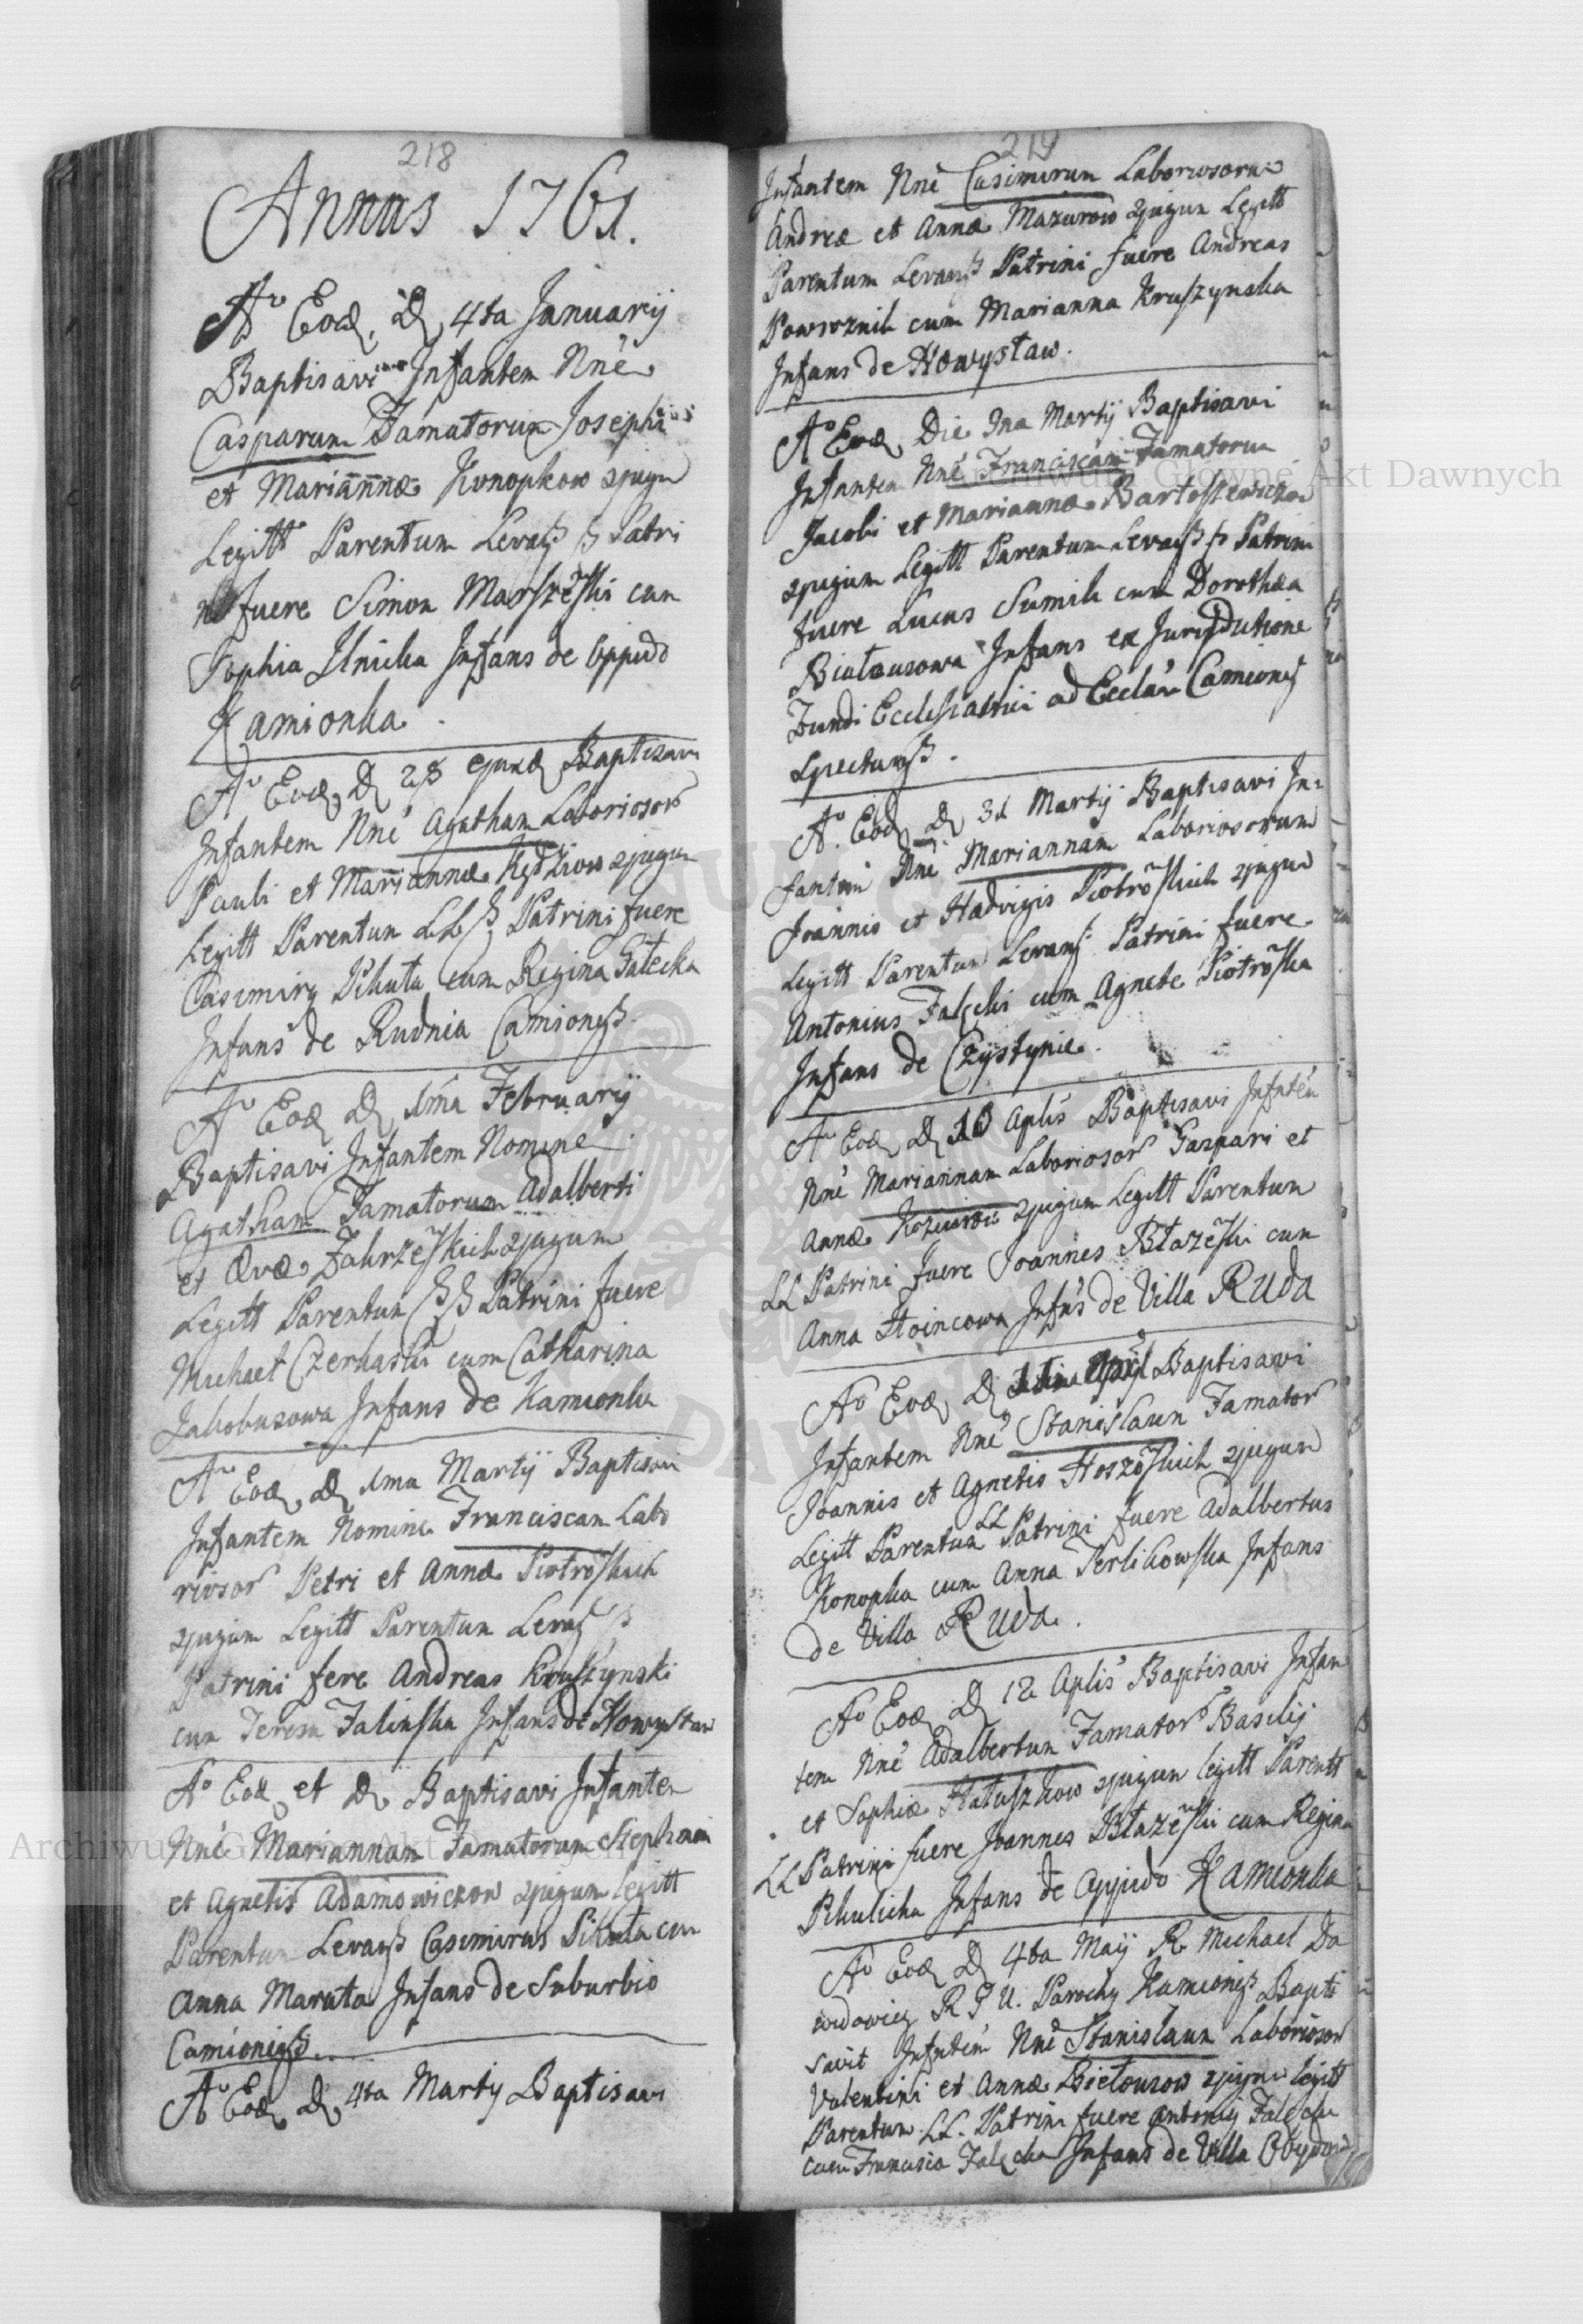 218
Annus 1761.
Aº Eod. D 4ta Januarij
Baptisavi Infantem Nnè
Casparum Famatorum Josephi
et Mariannæ Konopkow 2jugu
Legitt Parentum Levagß ß Patri
ni fuere Simon Marszèski cum
Sophia Ilnicka Infans de Oppido
Kamionka.
Aº Eod D 28 ejusd Baptisavi
Infantem Nnè Agatham Laboriosor
Pauli et Mariannæ 2jugum
Legitt Parentum LL ß Patrini fuere
Casimirg Pikuta cum Regina Gałecka
Infans de Rudnia Camiongß
Aº Eod D 1ma Februarij
Baptisavi Infantem Nomine
Agatham Famatorum Adalberti
et Evæ Zakrzèskich 2jugum
Legitt Parentum ß ß Patrini fuere
Michael Czerkaski cum Catharina
Jakobusowa Infans de Kamionka
Aº Eod D 1ma Martij Baptisavi
Infantem Nomine Franciscam Labo
riosor Petri et Annæ Piotròskich
2jugum Legitt Parentum Levag ß
Patrini fere Andreas Kruszynski
cum Teresa Falinska Infans de Howystaw
Aº Eod et D Baptisavi Infantem
Nnè Mariannam Famatorum Stephani
et Agnetis Adamowiczow 2jugum legitt
Parentum Levagß Casimirus Pikuta cum
Anna Maruta Infans de Suburbio
Camiongß.
Aº Eod D 4ta Martij Baptisavi
219
Infantem Nnè Casimirum Laboriosorum
Andreæ et Annæ Mazurow 2jugum Legitt
Parentum Levagß Patrini fuere Andreas
Powroznik cum Marianna Kruszynska
Infans de Howystaw.
Aº Eod Die Martij Baptisavi
Infantem Nnè Franciscam Famatorum
Jacobi et Mariannæ Bartoszewiczow
2jugum Legitt Parentum Levagß ß Patrini
fuere Lucas Sumik cum Dorothea
Infans ex Jurisdictione
Fundi Ecclesiastici ad Ecclàm Camiong
Spectangß.
Aº Eod D 31 Martij Baptisavi In:
fantem Nnè Mariannam Laboriosorum
Joannis et Hadvigis Piotròskich 2jugum
Legitt Parentum Levang Patrini fuere
Antonius Falęcki cum Agnete Piotròska
Infans de Czystynie.
Aº Eod D 10 Aplis Baptisavi Infntèm
Nnè Mariannam Laboriosor Gaspari et
Annæ 2jugum Legitt Parentum
LL Patrini fuere Joannes Błazèski cum
Anna Hoincowa Infns de Villa Ruda
Aº Eod D Baptisavi
Infantem Nnè Stanislaum Famator
Joannis et Agnetis Hoszòskich 2jugum
Legitt Parentum LL Patrini fuere Adalbertus
Konopka cum Anna Terlikowska Infans
de Villa Ruda.
Aº Eod D 12 Aplis Baptisavi Infan
tem Nnè Adalbertum Famator Basilij
et Sophiæ Hatuszkow 2jugum legitt Parentt
LL Patrini fuere Joannes Błazèski cum Regina
Pikulicka Infans de Oppido Kamionka
Aº Eod D 4ta Maij R. Michael Da
widowicz R P U. Parochg Kamiongß Bapti
savit Infntèm Nnè Stanislaum Laboriosor
Valentini et Annæ 2jugum legitt
Parentum LL. Patrini fuere Antonig Falęcki
cum Francisca Falęcka Infans de Villa
Archiwum Główne Akt Dawnych
Archiwum Główne Akt Dawnych